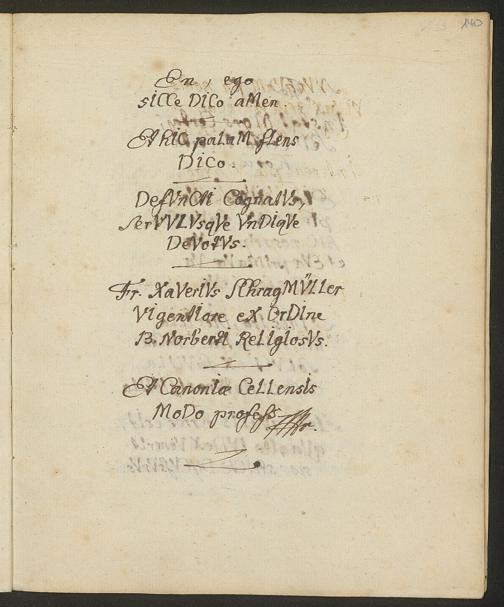 140
En, ego
sILLe DICo aMen
Et hIC paLaM flens
DICo.
DefVnCti CognatVs,
serVVLVsqVe VnDIqVe
DeVotVs.
Fr. XaVerIVs SChragMÜLLer
VIgentIore eX OrDIne
B. NorbertI ReLIgIosVs.
Et CanonIæ CeLLensIs
MoDo professor.